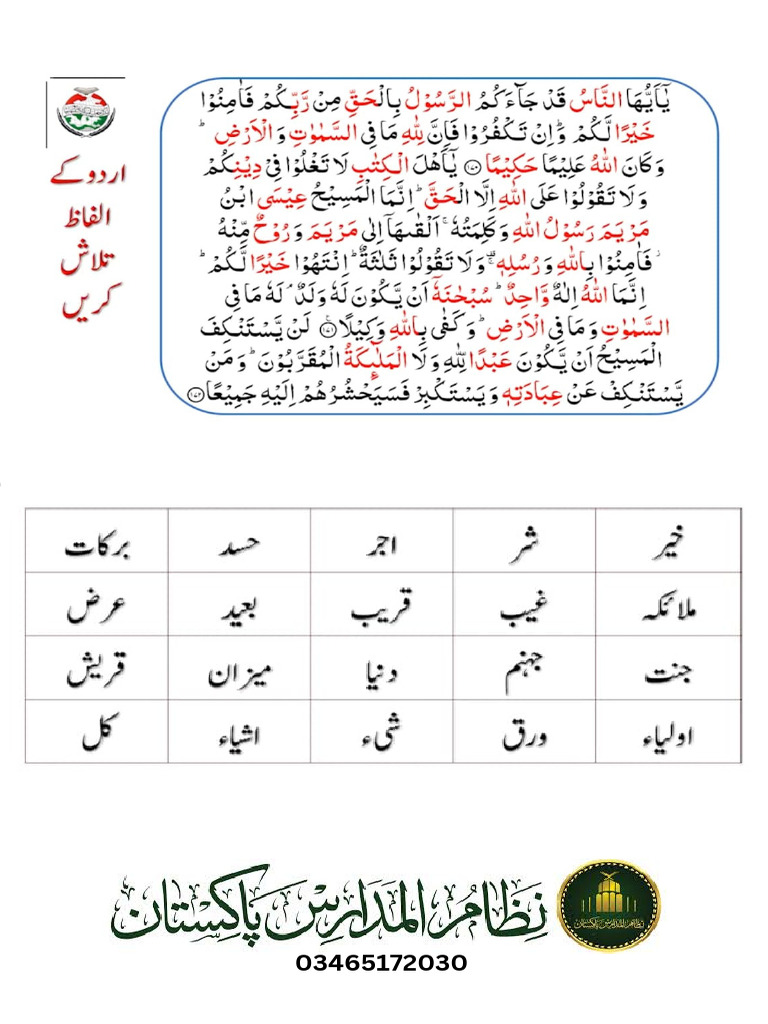 اردو کے
الفاظ
تلاش
کریں
يٰۤاَيُّهَا النَّاسُ قَدْ جَآءَكُمُ الرَّسُوْلُ بِالْحَقِّ مِنْ رَّبِّكُمْ فَاٰمِنُوْا
خَيْرًا لَّكُمْ ؕ وَاِنْ تَكْفُرُوْا فَاِنَّ لِلّٰهِ مَا فِى السَّمٰوٰتِ وَ الْاَرْضِ ؕ
وَ كَانَ اللّٰهُ عَلِيْمًا حَكِيْمًا ﴿۱۷۰﴾ يٰۤاَهْلَ الْكِتٰبِ لَا تَغْلُوْا فِىْ دِيْنِكُمْ
وَ لَا تَقُوْلُوْا عَلَى اللّٰهِ اِلَّا الْحَقَّ ؕ اِنَّمَا الْمَسِيْحُ عِيْسَى ابْنُ
مَرْيَمَ رَسُوْلُ اللّٰهِ وَ كَلِمَتُهٗ ۚ اَلْقٰىهَاۤ اِلٰى مَرْيَمَ وَ رُوْحٌ مِّنْهُ
ؗ فَاٰمِنُوْا بِاللّٰهِ وَ رُسُلِهٖ ۚ۫ وَ لَا تَقُوْلُوْا ثَلٰثَةٌ ؕ اِنْتَهُوْا خَيْرًا لَّكُمْ ؕ
اِنَّمَا اللّٰهُ اِلٰهٌ وَّاحِدٌ ؕ سُبْحٰنَهٗۤ اَنْ يَّكُوْنَ لَهٗ وَلَدٌ ۘ لَهٗ مَا فِى
السَّمٰوٰتِ وَ مَا فِى الْاَرْضِ ؕ وَ كَفٰى بِاللّٰهِ وَكِيْلًا ﴿۱۷۱﴾ لَنْ يَّسْتَنْكِفَ
الْمَسِيْحُ اَنْ يَّكُوْنَ عَبْدًا لِّلّٰهِ وَ لَا الْمَلٰٓئِكَةُ الْمُقَرَّبُوْنَ ؕ وَ مَنْ
يَّسْتَنْكِفْ عَنْ عِبَادَتِهٖ وَ يَسْتَكْبِرْ فَسَيَحْشُرُهُمْ اِلَيْهِ جَمِيْعًا ﴿۱۷۲﴾
خیر شر اجر حسد برکات
ملائکہ غیب قریب بعید عرض
جنت جہنم دنیا میزان قریش
اولیاء ورق شیء اشیاء کل
نظام المدارس پاکستان
نِظَامُ المَدَارِسْ پَاکِسْتَان
03465172030